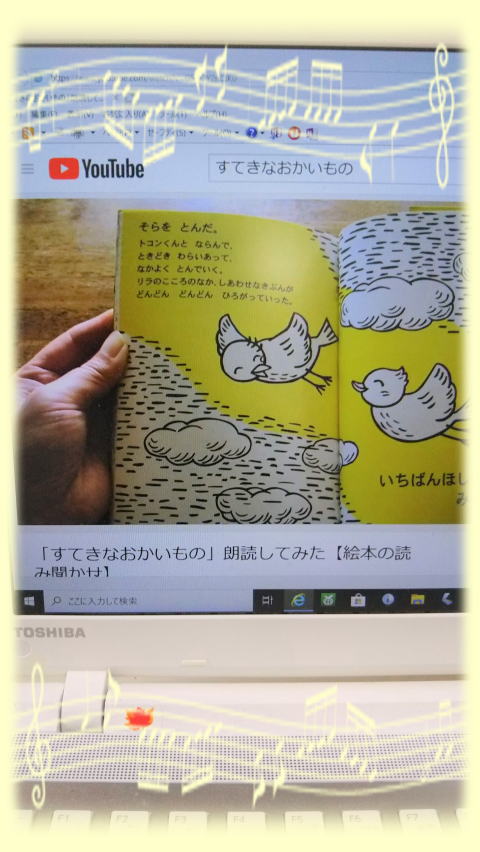 YouTube
すてきなおかいもの
そらを とんだ。
トコンくんと ならんで、
ときどき わらいあって、
なかよく とんでいく。
リラのこころのなか、しあわせなきぶんが
どんどん どんどん ひろがっていった。
いちばんほし
み
「すてきなおかいもの」朗読してみた【絵本の読
み聞かせ】
ここに入力して検索
TOSHIBA
F1 F2 F3 F4 F5 F6 F7